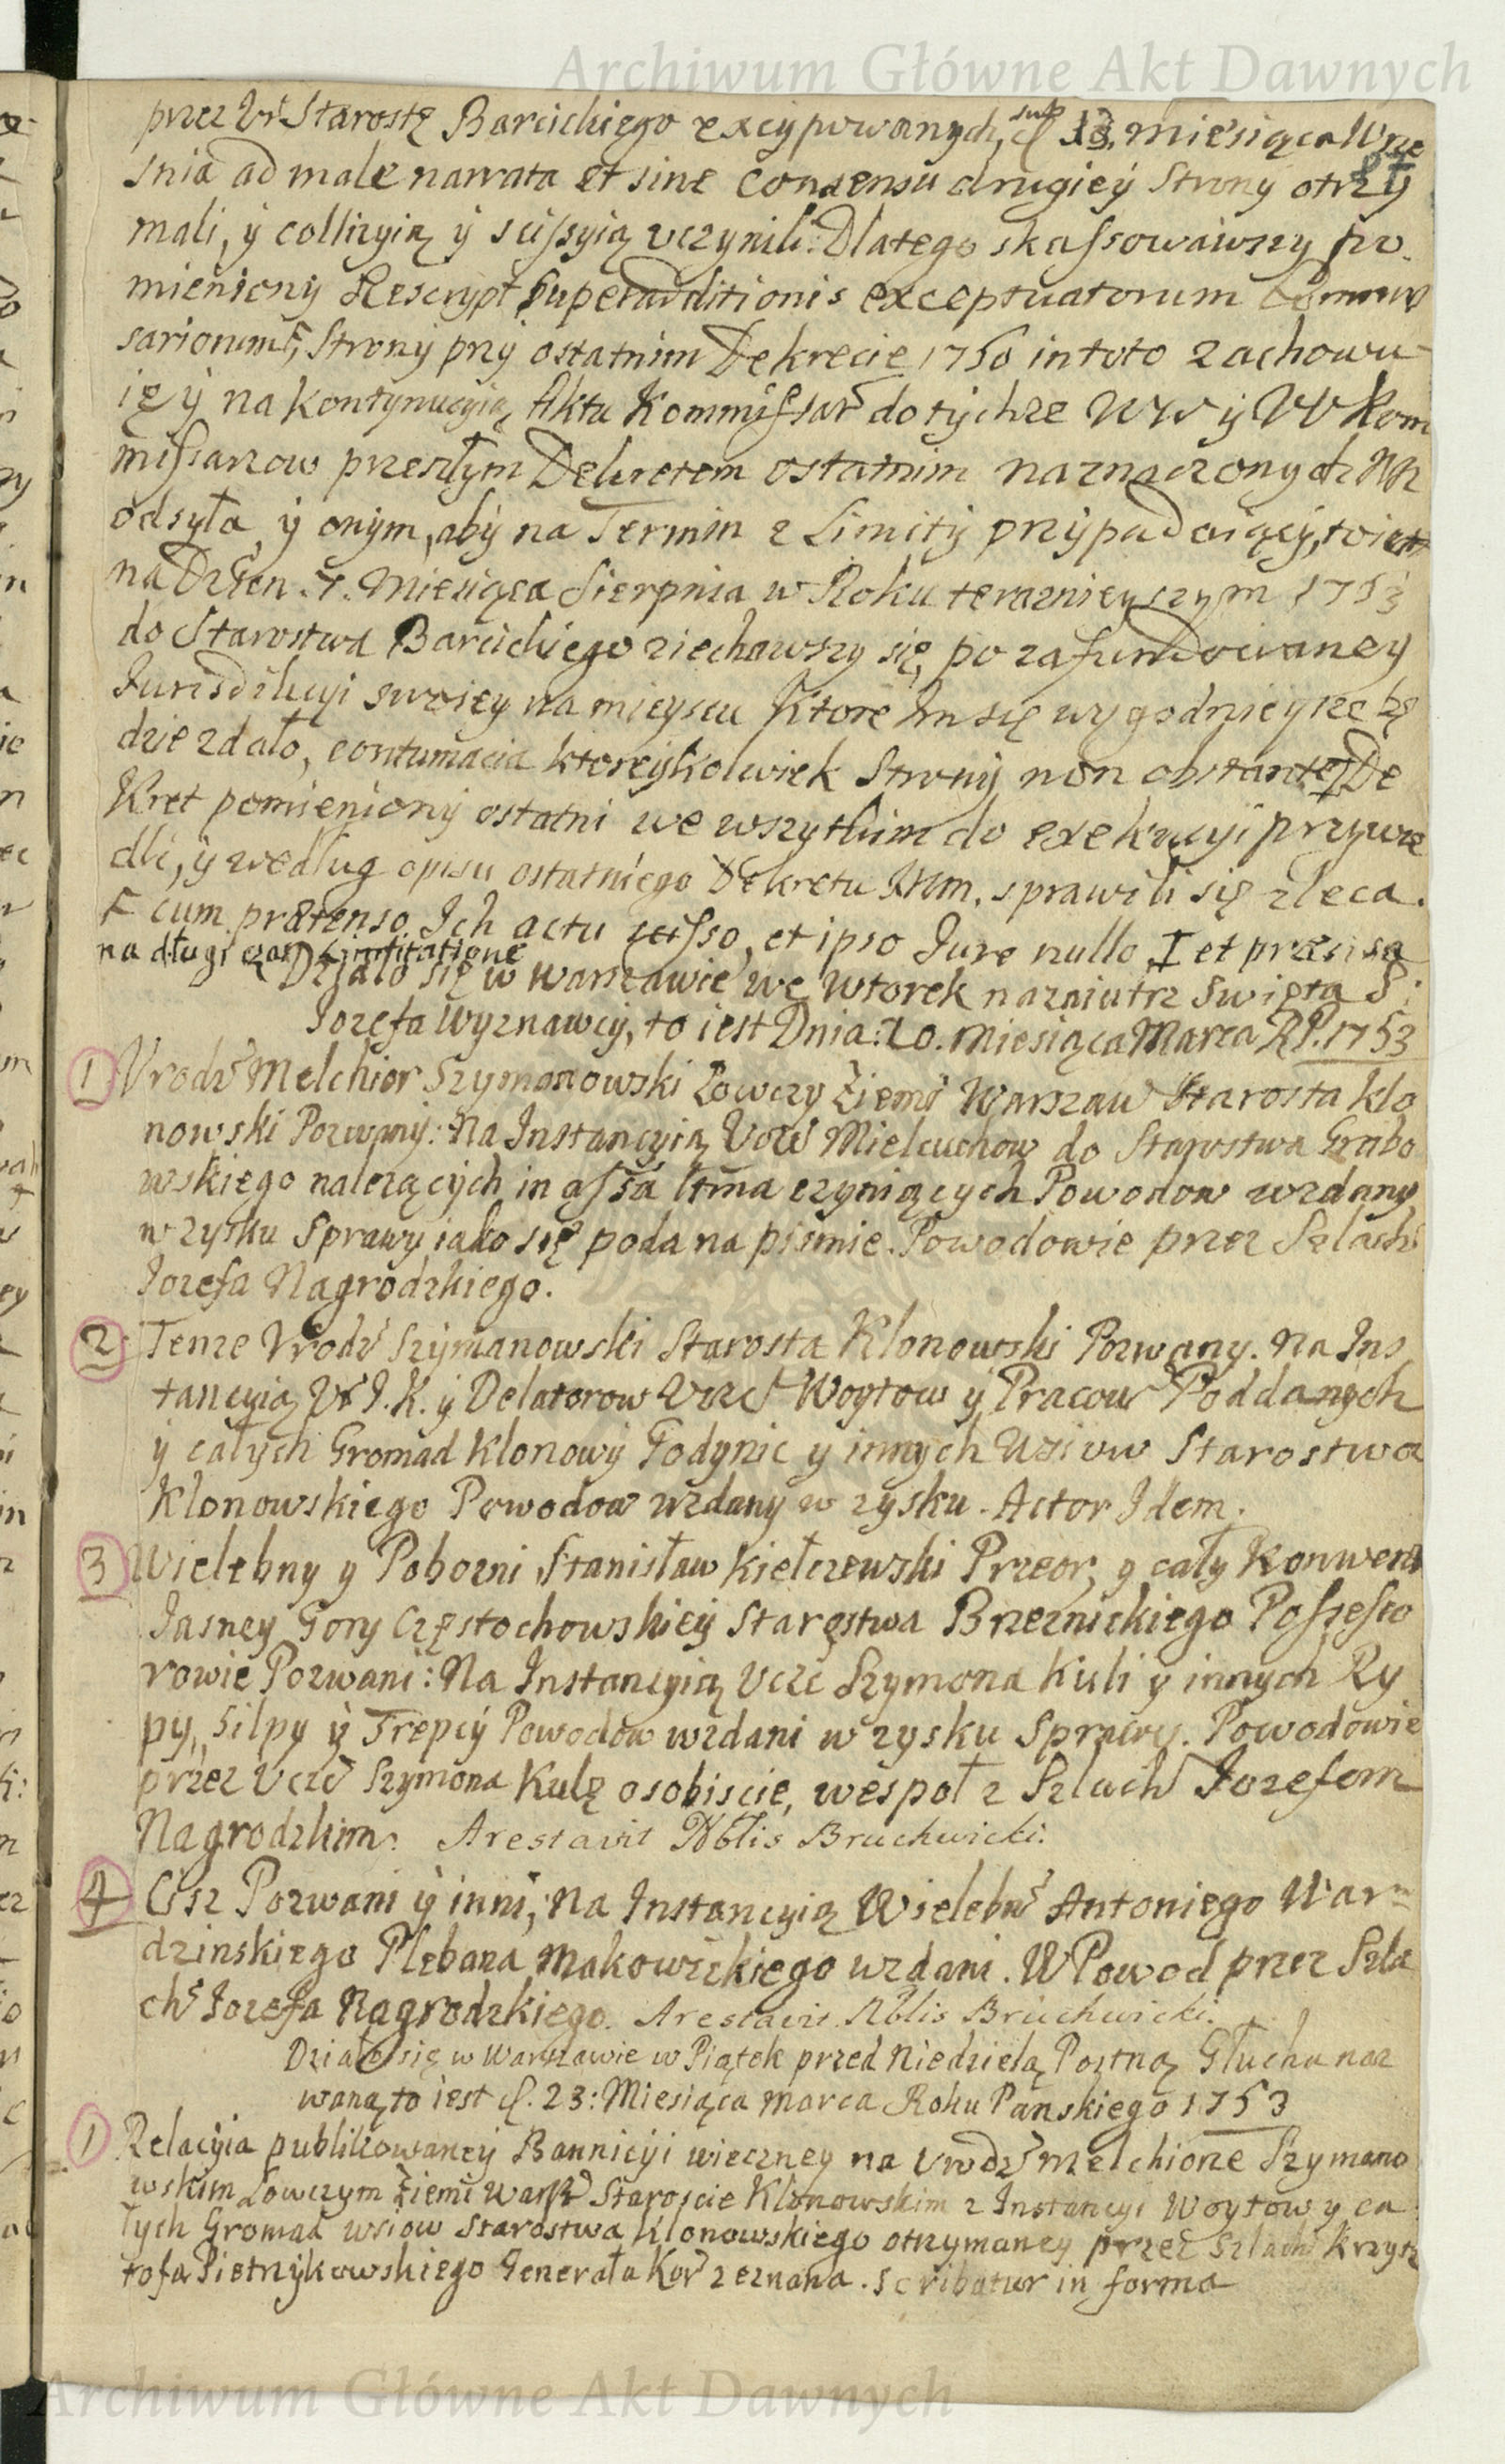 Archiwum Główne Akt Dawnych
przez Ur Starostę Barcickiego excypowanych, sub d 18. miesiąca Wrze
87
snia ad male narrata et sine consensu drugiey Strony otrzy
mali, y collizyią y scissyią uczynili. Dlatego skassowawszy po
mieniony Rescrypt Superadditionis exceptuatorum Commis
sariorum F, Strony przy ostatnim Dekrecie 1750 in toto zachowu
ię y na kontynuacyią Aktu Kommissar do tychże WW y UU Kom
missarzow przeszłym Dekretem ostatnim naznaczonych
odsyła, y onym, aby na Termin z Limity przypadaiący, to iest
na Dzien .7. Miesiąca Sierpnia w Roku teraznieyszym 1753
do Starostwa Barcickiego ziechawszy się, po zafundowaney
Jurisdikcyi swoiey na mieyscu Ktore Im się wygodnieysze bę
dzie zdało, contumacia ktoreykolwiek Strony non obstante, I De
kret pomieniony ostatni we wszytkim do exekucyi przywie
dli, y według opisu ostatniego Dekretu sprawili się zleca.
F cum prætenso Ich actu scisso, et ipso Jure nullo I et præcisa
na długi czas Limitatione
Działo się w Warszawie we Wtorek nazaiutrz Swięta S:
Jozefa Wyznawcy, to iest Dnia: 20. Miesiąca Marca R.P. 1753
1 Urodz Melchior Szymanowski Łowczy Ziemi Warszaw Starosta Klo
nowski Pozwany: Na Instancyią Ucz Mielcuchow do Starostwa Grabo
wskiego nalezących in assa ltma czyniących Powodow wzdany
w zysku Sprawy iako się poda na pismie. Powodowie przez Szlach
Jozefa Nagrodzkiego.
2 Tenze Urodz Szymanowski Starosta Klonowski Pozwany. Na Ins
tancyią Ur I.K. y Delatorow Ucz Woytow y Pracow Poddanych
y całych Gromad Klonowy Godynic y innych Wsiow Starostwa
Klonowskiego Powodow wzdany w zysku. Actor Idem.
3 Wielebny y Pobozni Stanisław Kiełczewski Przeor, y cały Konwent
Jasney Gory Częstochowskiey Starostwa Brzeznickiego Possesso
rowie Pozwani: Na Instancyią Ucz Szymona Kuli y innych Ry
py, Silpy y Trepcy Powodow wzdani w zysku Sprawy. Powodowie
przez Ucz Szymona Kulę osobiscie, wespoł z Szlach Jozefom
Nagrodzkim. Arestavit Nblis Bruchwicki.
4 Cisz Pozwani y inni, Na Instancyią Wielebn Antoniego War=
dzinskiego Plebana Makowskiego wzdani. W Powod przez Szla
ch Jozefa Nagrodzkiego. Arestavit Nblis Bruchwicki.
Działo się w Warszawie w Piątek przed Niedzielą Postną Głucha naz
waną to iest d. 23: Miesiąca Marca Roku Panskiego 1753
1 Relacyia publikowaney Bannicyi wieczney na Urodz Melchiorze Szymano
wskim Łowczym Ziemi Warsz Staroscie Klonowskim z Instancyi Woytow y ca
łych Gromad wsiow Starostwa Klonowskiego otrzymaney przez Szlach Krzysz
tofa Pietrzykowskiego Generała Kor zeznana. Scribatur in forma
Archiwum Główne Akt Dawnych